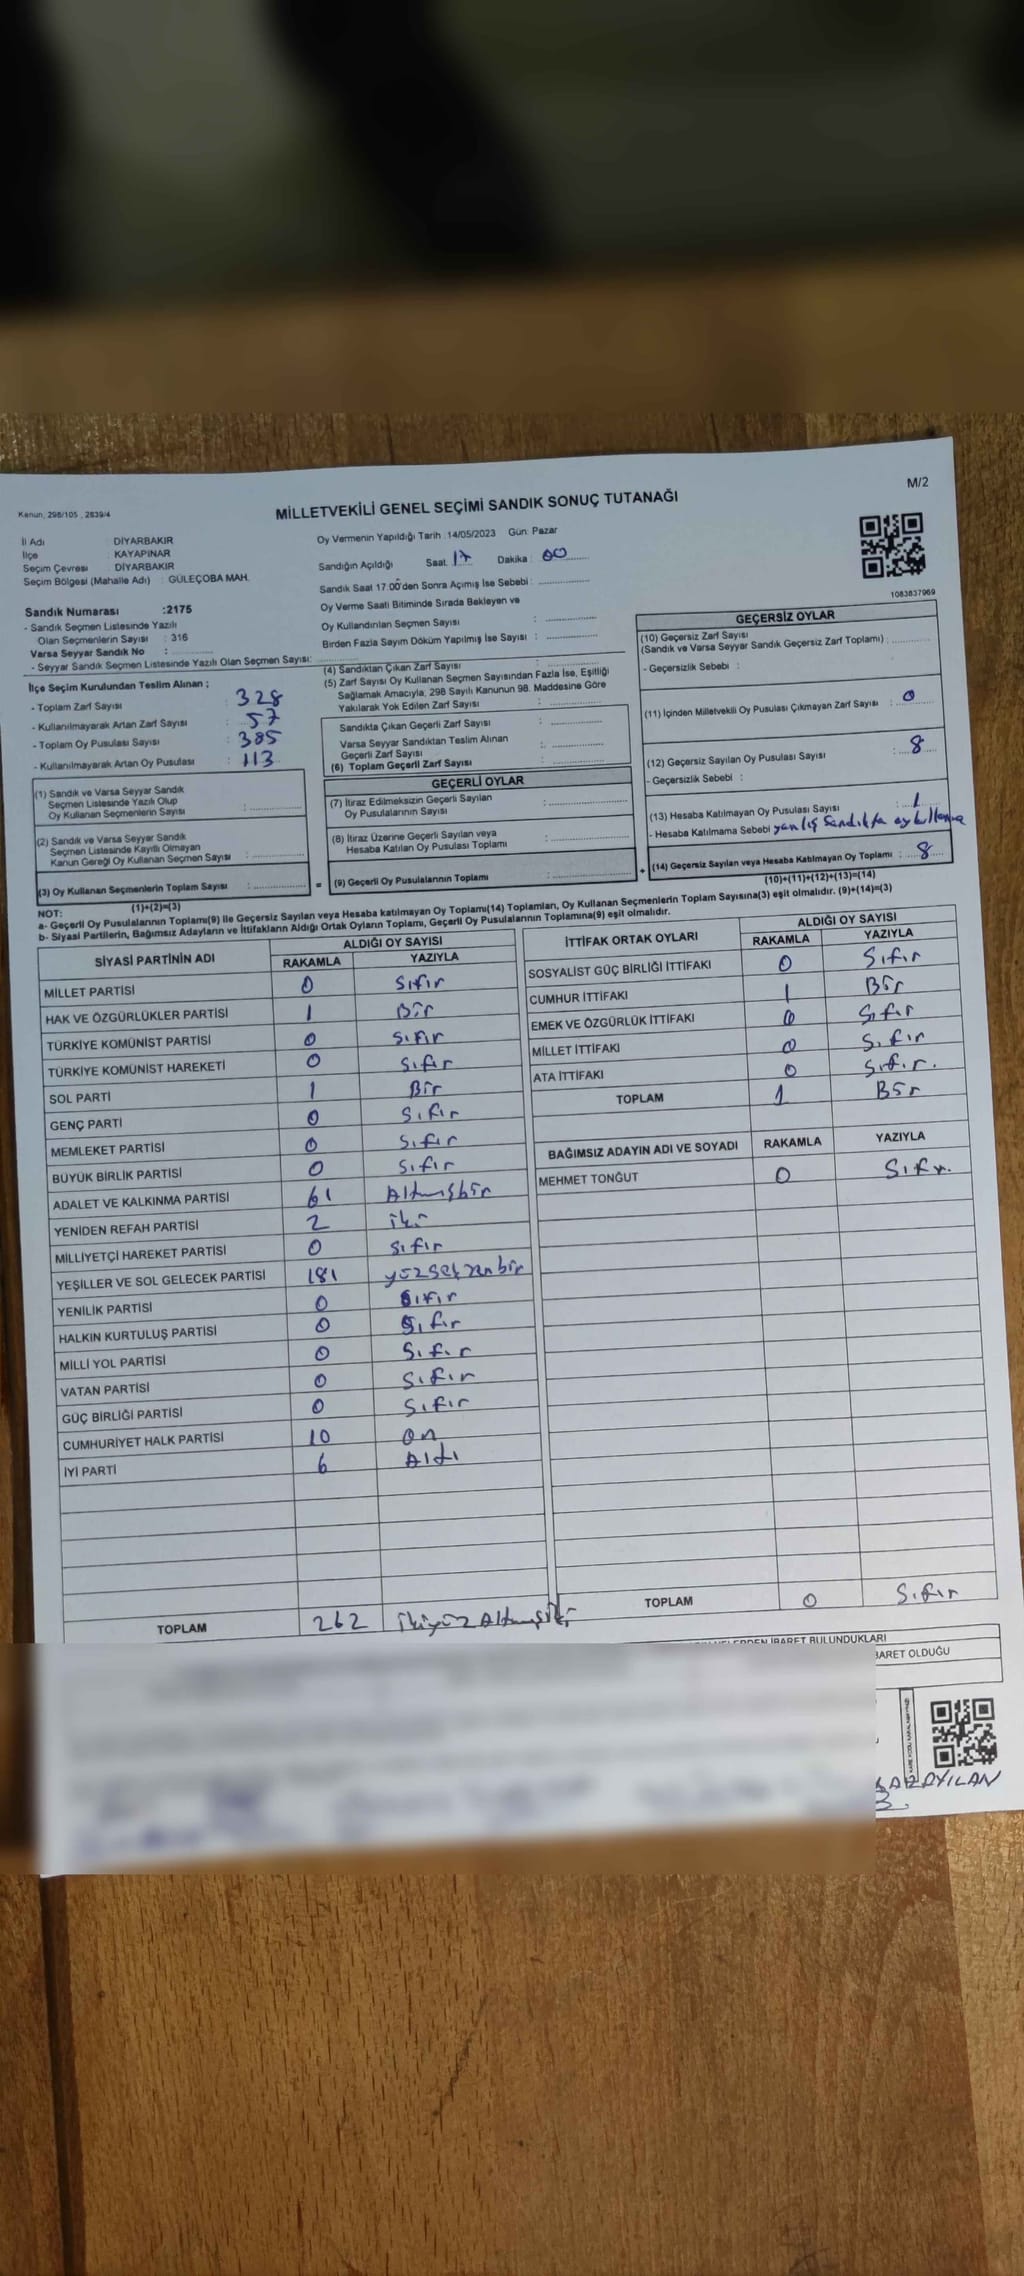 M/2
Kanun, 298/105 , 2839/4
MİLLETVEKİLİ GENEL SEÇİMİ SANDIK SONUÇ TUTANAĞI
İl Adı : DİYARBAKIR
İlçe : KAYAPINAR
Seçim Çevresi : DİYARBAKIR
Seçim Bölgesi (Mahalle Adı) : GÜLEÇOBA MAH.
Sandık Numarası :2175
- Sandık Seçmen Listesinde Yazılı
Olan Seçmenlerin Sayısı : 316
Varsa Seyyar Sandık No :
- Seyyar Sandık Seçmen Listesinde Yazılı Olan Seçmen Sayısı:
Oy Vermenin Yapıldığı Tarih : 14/05/2023 Gün: Pazar
Sandığın Açıldığı Saat: 17 Dakika : 00
Sandık Saat 17:00'den Sonra Açımış İse Sebebi :
Oy Verme Saati Bitiminde Sırada Bekleyen ve
Oy Kullandırılan Seçmen Sayısı :
Birden Fazla Sayım Döküm Yapılmış İse Sayısı :
1083837969
İlçe Seçim Kurulundan Teslim Alınan ;
- Toplam Zarf Sayısı : 328
- Kullanılmayarak Artan Zarf Sayısı : 57
- Toplam Oy Pusulası Sayısı : 385
- Kullanılmayarak Artan Oy Pusulası : 113
(1) Sandık ve Varsa Seyyar Sandık
Seçmen Listesinde Yazılı Olup
Oy Kullanan Seçmenlerin Sayısı :
(2) Sandık ve Varsa Seyyar Sandık
Seçmen Listesinde Kayıtlı Olmayan
Kanun Gereği Oy Kullanan Seçmen Sayısı :
(3) Oy Kullanan Seçmenlerin Toplam Sayısı :
(1)+(2)=(3)
(4) Sandıktan Çıkan Zarf Sayısı :
(5) Zarf Sayısı Oy Kullanan Seçmen Sayısından Fazla İse, Eşitliği
Sağlamak Amacıyla, 298 Sayılı Kanunun 98. Maddesine Göre
Yakılarak Yok Edilen Zarf Sayısı :
Sandıkta Çıkan Geçerli Zarf Sayısı :
Varsa Seyyar Sandıktan Teslim Alınan
Geçerli Zarf Sayısı :
(6) Toplam Geçerli Zarf Sayısı :
GEÇERLİ OYLAR
(7) İtiraz Edilmeksizin Geçerli Sayılan
Oy Pusulalarının Sayısı :
(8) İtiraz Üzerine Geçerli Sayılan veya
Hesaba Katılan Oy Pusulası Toplamı :
= (9) Geçerli Oy Pusulalarının Toplamı :
GEÇERSİZ OYLAR
(10) Geçersiz Zarf Sayısı
(Sandık ve Varsa Seyyar Sandık Geçersiz Zarf Toplamı) :
- Geçersizlik Sebebi :
(11) İçinden Milletvekili Oy Pusulası Çıkmayan Zarf Sayısı : 0
(12) Geçersiz Sayılan Oy Pusulası Sayısı : 8
- Geçersizlik Sebebi :
(13) Hesaba Katılmayan Oy Pusulası Sayısı : 1
- Hesaba Katılmama Sebebi yanlış Sandıkta oy kullanma
+ (14) Geçersiz Sayılan veya Hesaba Katılmayan Oy Toplamı : 8
(10)+(11)+(12)+(13)=(14)
NOT:
a- Geçerli Oy Pusulalarının Toplamı(9) ile Geçersiz Sayılan veya Hesaba katılmayan Oy Toplamı(14) Toplamları, Oy Kullanan Seçmenlerin Toplam Sayısına(3) eşit olmalıdır. (9)+(14)=(3)
b- Siyasi Partilerin, Bağımsız Adayların ve İttifakların Aldığı Ortak Oyların Toplamı, Geçerli Oy Pusulalarının Toplamına(9) eşit olmalıdır.
SİYASİ PARTİNİN ADI ALDIĞI OY SAYISI
RAKAMLA YAZIYLA
MİLLET PARTİSİ 0 Sıfır
HAK VE ÖZGÜRLÜKLER PARTİSİ 1 Bir
TÜRKİYE KOMÜNİST PARTİSİ 0 Sıfır
TÜRKİYE KOMÜNİST HAREKETİ 0 Sıfır
SOL PARTİ 1 Bir
GENÇ PARTİ 0 Sıfır
MEMLEKET PARTİSİ 0 Sıfır
BÜYÜK BİRLİK PARTİSİ 0 Sıfır
ADALET VE KALKINMA PARTİSİ 61 Altmışbir
YENİDEN REFAH PARTİSİ 2 iki
MİLLİYETÇİ HAREKET PARTİSİ 0 Sıfır
YEŞİLLER VE SOL GELECEK PARTİSİ 181 yüzseksenbir
YENİLİK PARTİSİ 0 Sıfır
HALKIN KURTULUŞ PARTİSİ 0 Sıfır
MİLLİ YOL PARTİSİ 0 Sıfır
VATAN PARTİSİ 0 Sıfır
GÜÇ BİRLİĞİ PARTİSİ 0 Sıfır
CUMHURİYET HALK PARTİSİ 10 on
İYİ PARTİ 6 Altı
TOPLAM 262 ikiyüzAltmışiki
İTTİFAK ORTAK OYLARI ALDIĞI OY SAYISI
RAKAMLA YAZIYLA
SOSYALİST GÜÇ BİRLİĞİ İTTİFAKI 0 Sıfır
CUMHUR İTTİFAKI 1 Bir
EMEK VE ÖZGÜRLÜK İTTİFAKI 0 Sıfır
MİLLET İTTİFAKI 0 Sıfır
ATA İTTİFAKI 0 Sıfır.
TOPLAM 1 Bir
BAĞIMSIZ ADAYIN ADI VE SOYADI RAKAMLA YAZIYLA
MEHMET TONĞUT 0 Sıfır.
TOPLAM 0 Sıfır
İBARET BULUNDUKLARI
BARET OLDUĞU